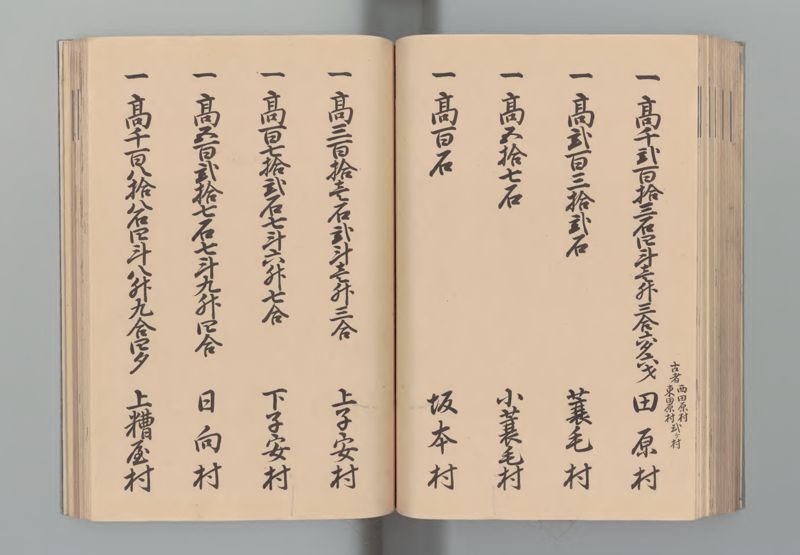 一高千弐百拾三石四斗壱升三合六夕六才 田原村
古者 西田原村
東田原村 弐ヶ村
一高弐百三拾弐石 蓑毛村
一高五拾七石 小蓑毛村
一高百石 坂本村
一高三百拾壱石弐斗壱升三合 上子安村
一高百七拾弐石七斗六升七合 下子安村
一高五百弐拾七石七斗九升四合 日向村
一高千百八拾八石四斗八升九合四夕 上糟屋村